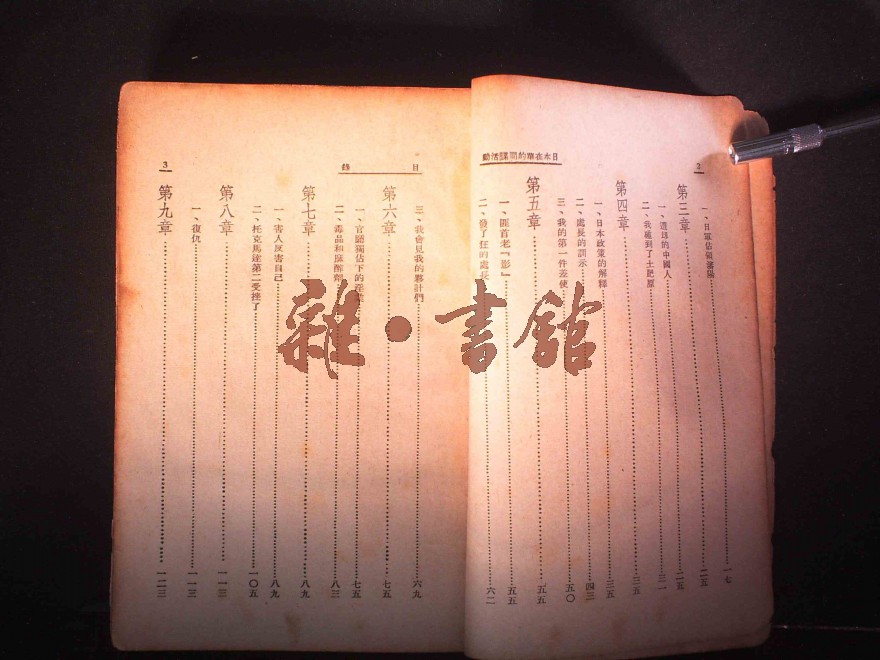 2
日本在華的間諜活動
一、日軍佔領瀋陽……一七
第三章……二五
一、選拔的中國人……二五
二、我遇到了土肥原……三一
第四章……三五
一、日本政策的解釋……三五
二、處長的訓示……四三
三、我的第一件差使……五〇
第五章……五五
一、匪首老「影」……五五
二、發了狂的處長……六二
目錄
3
三、我會見我的夥計們……六九
第六章……七五
一、官廳獨佔下的……七五
二、毒品和麻醉劑……八三
第七章……八九
一、害人反害自己……八九
二、托克馬達第二受挫了……一〇五
第八章……一一三
一、復仇……一一三
第九章……一二三
雜·書館